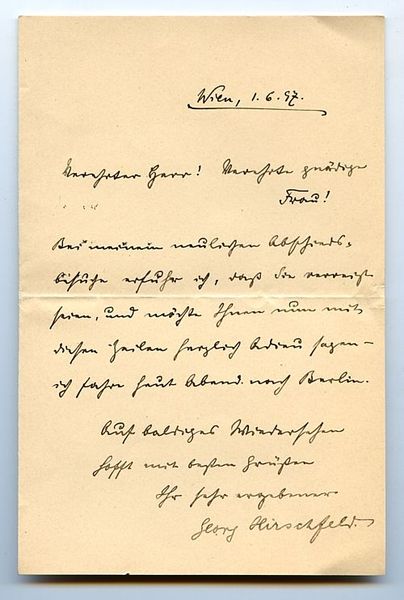 Wien, 1.6.97.
Verehrter Herr! Verehrte gnädige
Frau!
Bei meinem neulichen Abschieds-
besuche erfuhr ich, daß Sie verreist
seien, und möchte Ihnen nun mit
diesen Zeilen herzlich Adieu sagen –
ich fahre heut Abend nach Berlin.
Auf baldiges Wiedersehen
hofft mit besten Grüßen
Ihr sehr ergebener
Georg Hirschfeld.